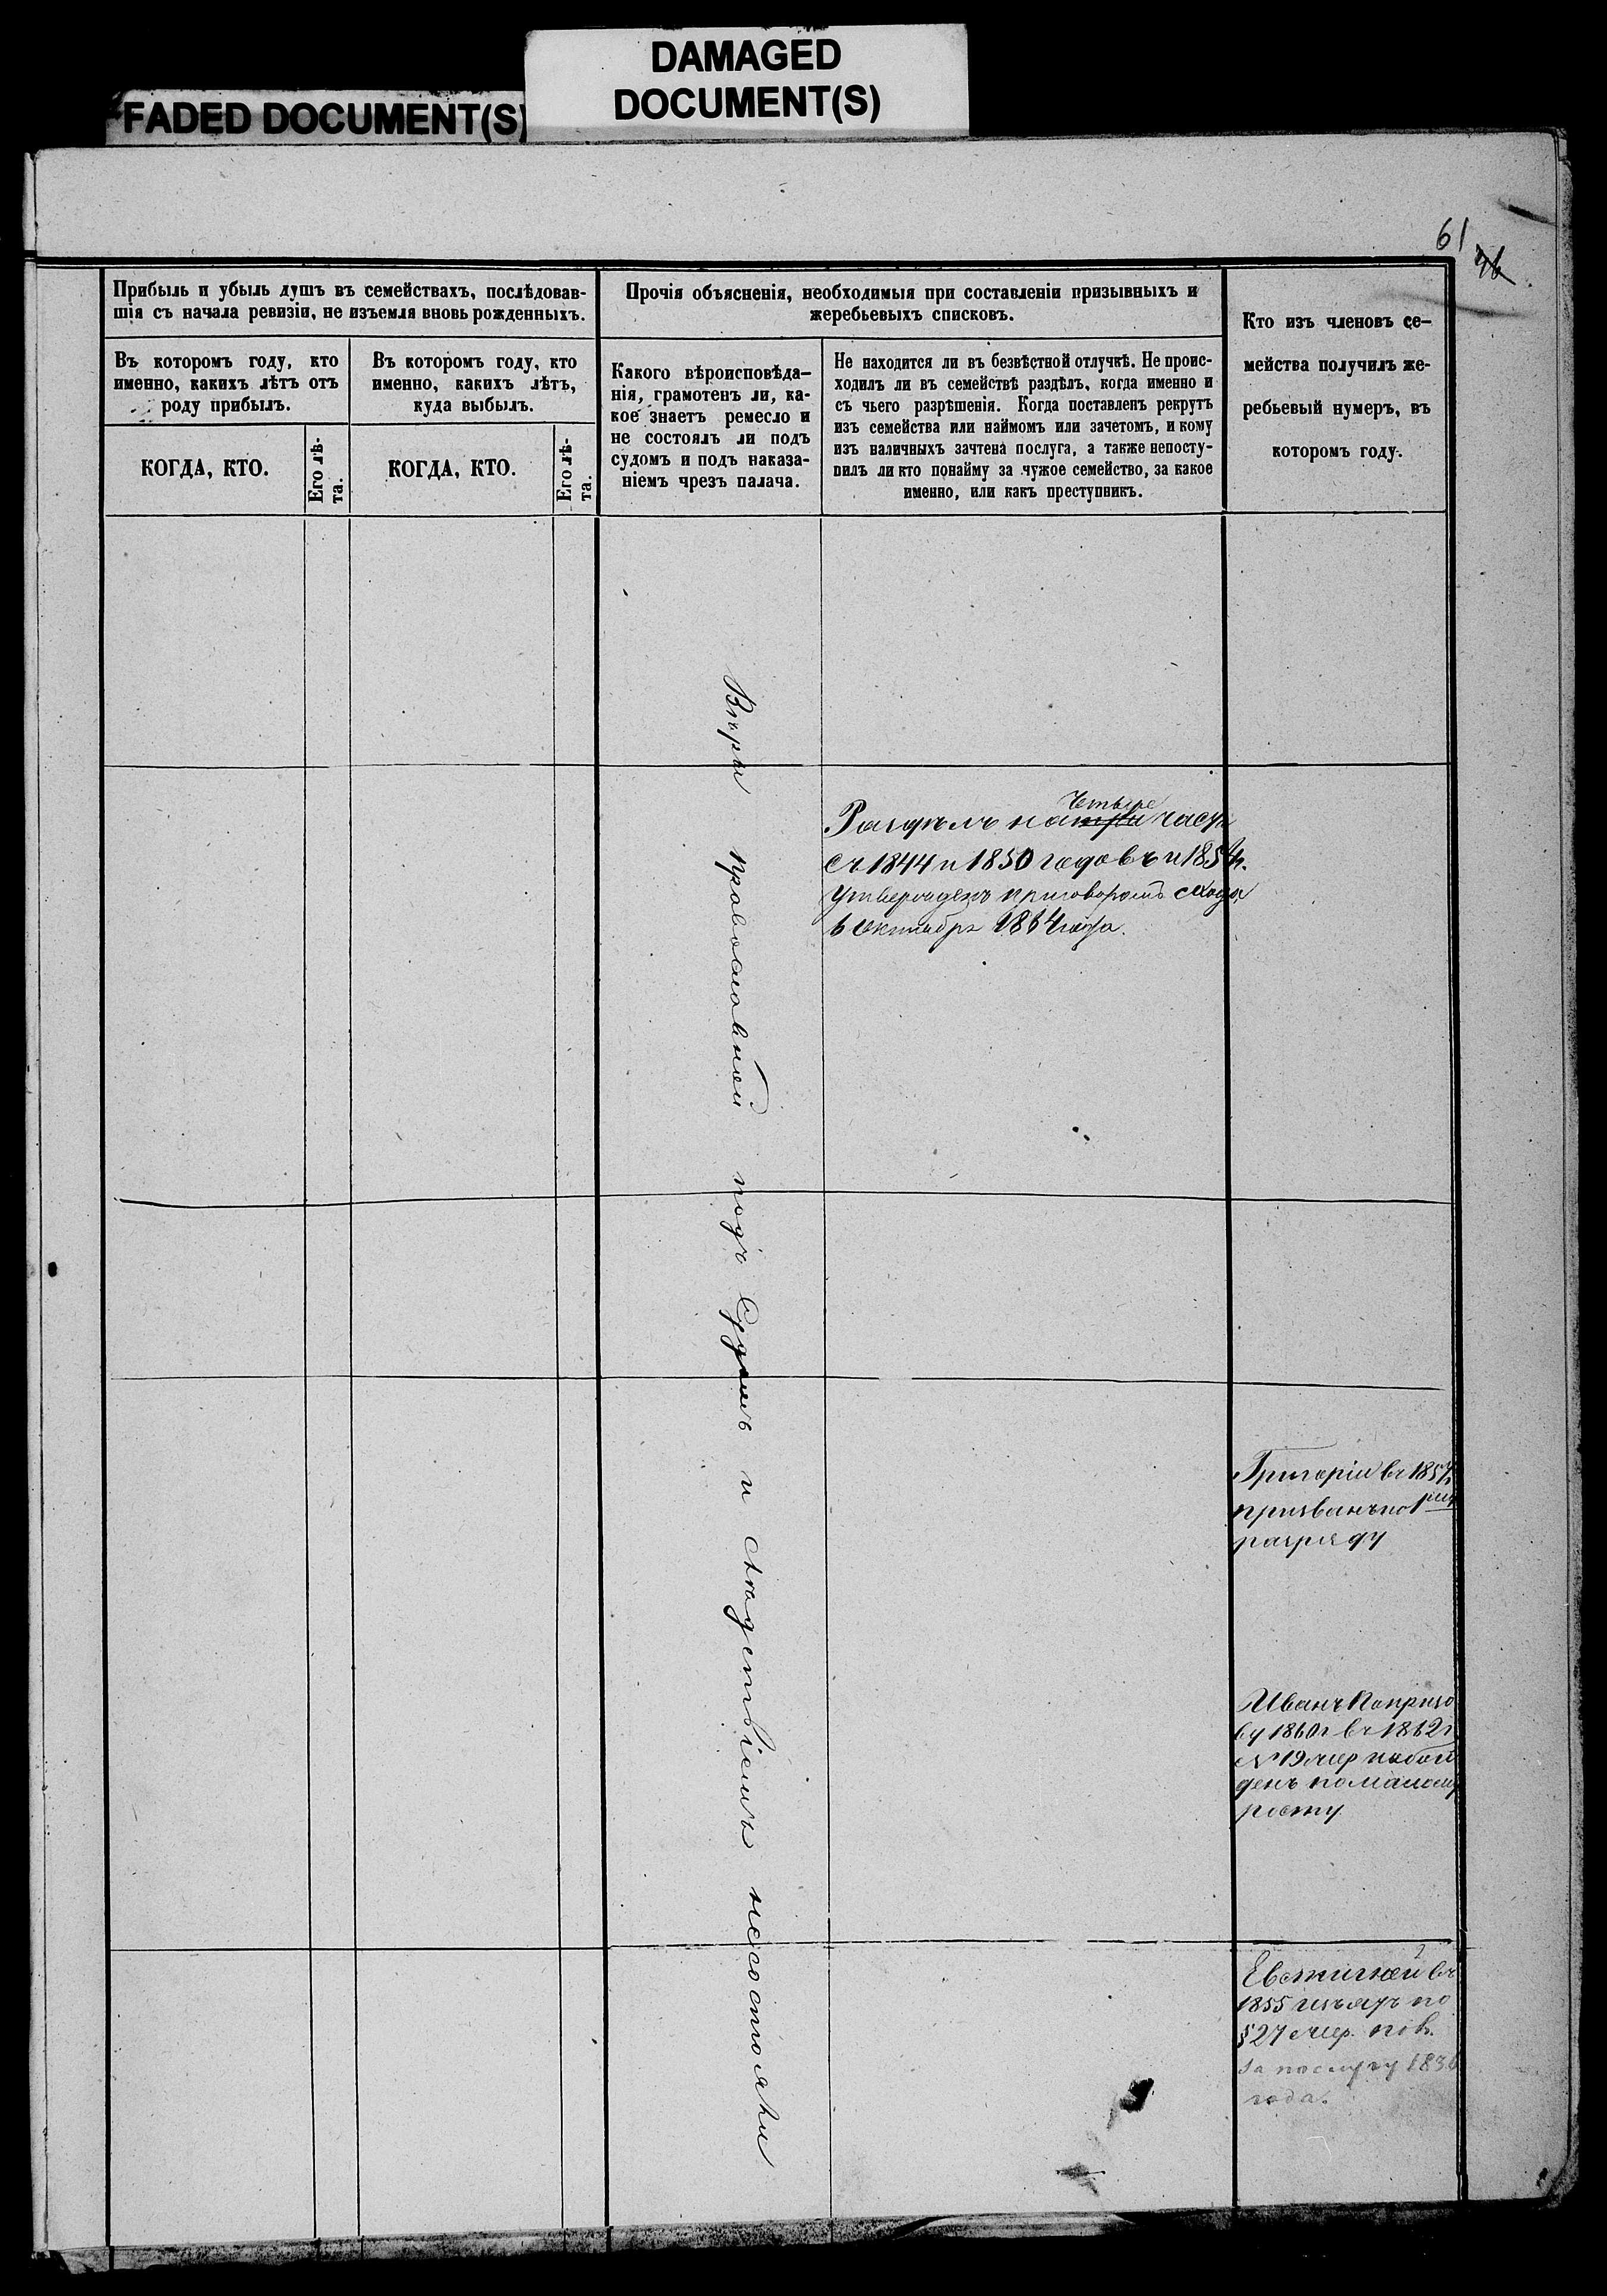 DAMAGED
DOCUMENT(S)
FADED DOCUMENT(S)
61
Прибыль и убыль душъ въ семействахъ, послѣдовав-
шія съ начала ревизіи, не изъемля вновь рожденныхъ.
Прочія объясненія, необходимыя при составленіи призывныхъ и
жеребьевыхъ списковъ.
Кто изъ членовъ се-
мейства получилъ же-
ребьевый нумеръ, въ
которомъ году.
Въ которомъ году, кто
именно, какихъ лѣтъ отъ
роду прибылъ.
Въ которомъ году, кто
именно, какихъ лѣтъ,
куда выбылъ.
Какого вѣроисповѣда-
нія, грамотенъ ли, ка-
кое знаетъ ремесло и
не состоялъ ли подъ
судомъ и подъ наказа-
ніемъ чрезъ палача.
Не находится ли въ безвѣстной отлучкѣ. Не проис-
ходилъ ли въ семействѣ раздѣлъ, когда именно и
съ чьего разрѣшенія. Когда поставленъ рекрутъ
изъ семейства или наймомъ или зачетомъ, и кому
изъ наличныхъ зачтена послуга, а также непосту-
пилъ ли кто понайму за чужое семейство, за какое
именно, или какъ преступникъ.
КОГДА, КТО.
Его лѣ-
та.
КОГДА, КТО.
Его лѣ-
та.
Вѣры православной подъ Судомъ и слѣдствіемъ несостояли
четыре
Раздѣлъ на три части
съ 1844 и 1850 годовъ и 1854г.
Утвержденъ приговоромъ схода
6 Октября 1864 года.
Григорій въ 1854г
призванъ по 1
разряду
Иванъ По призо
ву 1860г въ 1862г
№ 19
денъ по малому
росту
въ
1855 изъятъ по
§ 27
за послугу 1836
года.